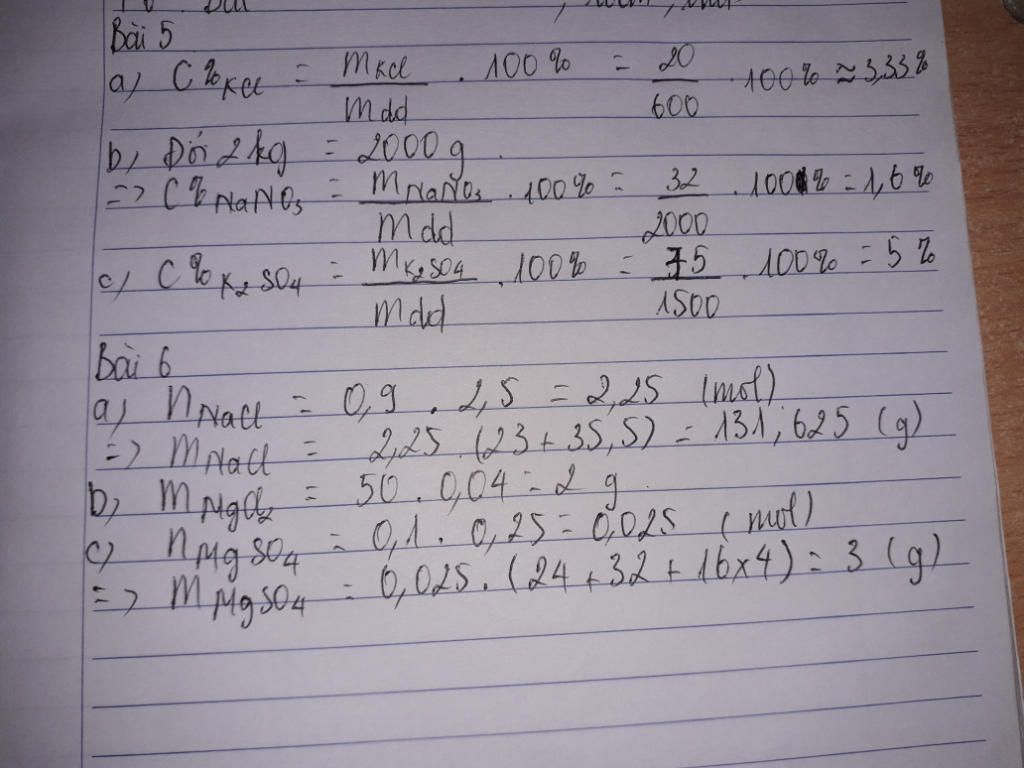 Bài 5
a) C%KCl = mKCl / mdd . 100% = 20 / 600 . 100% ≈ 3,33%
b) Đổi 2kg = 2000g.
=> C%NaNO3 = mNaNO3 / mdd . 100% = 32 / 2000 . 100% = 1,6%
c) C%K2SO4 = mK2SO4 / mdd . 100% = 75 / 1500 . 100% = 5%
Bài 6
a) nNaCl = 0,9 . 2,5 = 2,25 (mol)
=> mNaCl = 2,25 . (23 + 35,5) = 131,625 (g)
b) mMgCl2 = 50 . 0,04 = 2 g.
c) nMgSO4 = 0,1 . 0,25 = 0,025 (mol)
=> mMgSO4 = 0,025 . (24 + 32 + 16x4) = 3 (g)